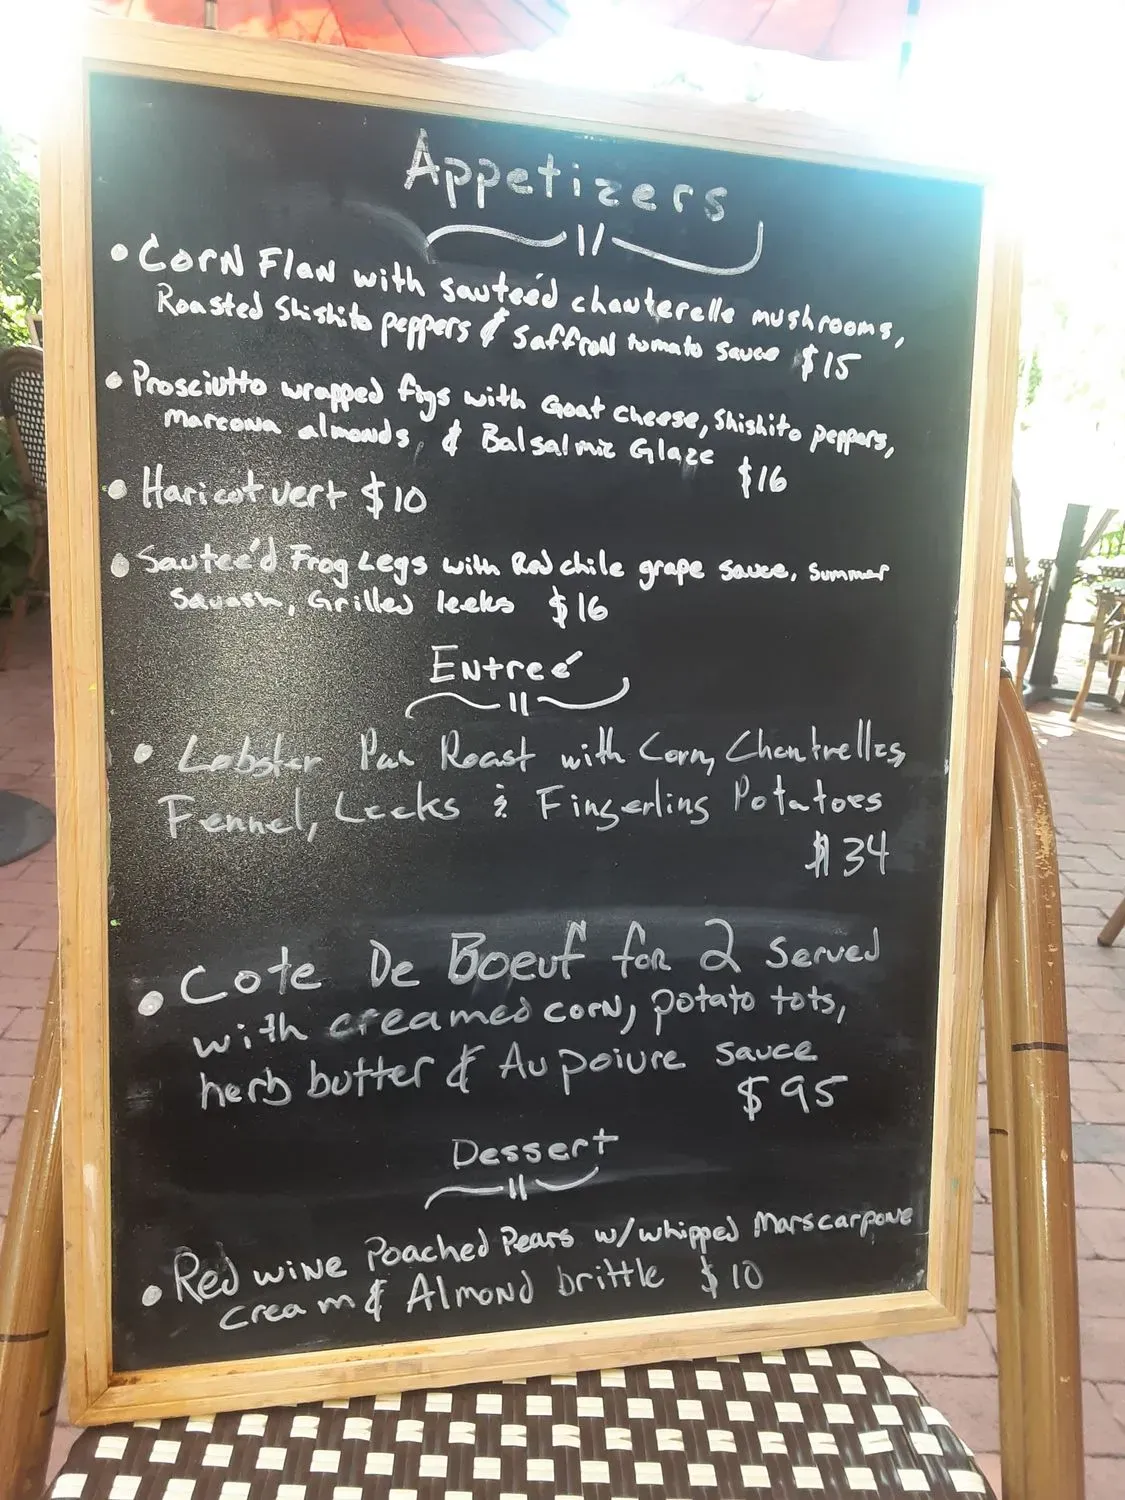 Appetizers
• Corn Flan with sauteé'd chanterelle mushrooms,
Roasted Shishito peppers & Saffron tomato sauce $15
• Prosciutto wrapped figs with Goat cheese, Shishito peppers,
Marcona almonds, & Balsalmic Glaze $16
• Haricot vert $10
• Sauteé'd Frog Legs with Red chile grape sauce, summer
Squash, Grilled leeks $16
Entreé
• Lobster Pan Roast with Corn, Chantrelles,
Fennel, Leeks & Fingerling Potatoes
$34
• Cote De Boeuf for 2 served
with creamed corn, potato tots,
herb butter & Au poivre sauce
$95
Dessert
• Red wine Poached Pears w/whipped Marscarpone
cream & Almond brittle $10